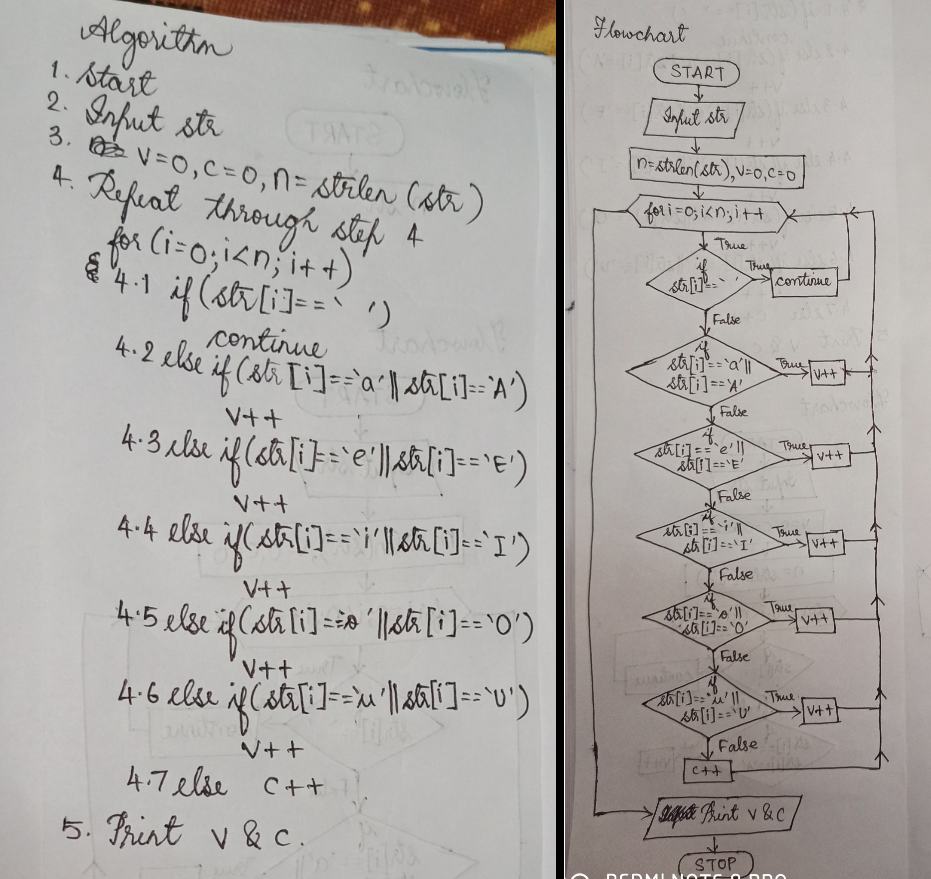 Algorithm
1. Start
2. Input str
3. v=0, c=0, n=strlen(str)
4. Repeat through step 4
for(i=0; i<n; i++)
4.1 if(str[i]==` ')
continue
4.2 else if(str[i]==`a'||str[i]==`A')
v++
4.3 else if(str[i]==`e'||str[i]==`E')
v++
4.4 else if(str[i]==`i'||str[i]==`I')
v++
4.5 else if(str[i]==`o'||str[i]==`O')
v++
4.6 else if(str[i]==`u'||str[i]==`U')
v++
4.7 else c++
5. Print v & c.
Flowchart
START
Input str
n=strlen(str), v=0, c=0
for i=0; i<n; i++
True
if
str[i]==` '
True
continue
False
if
str[i]==`a'||
str[i]==`A'
True
v++
False
if
str[i]==`e'||
str[i]==`E'
True
v++
False
if
str[i]==`i'||
str[i]==`I'
True
v++
False
if
str[i]==`o'||
str[i]==`O'
True
v++
False
if
str[i]==`u'||
str[i]==`U'
True
v++
False
c++
Print v & c
STOP